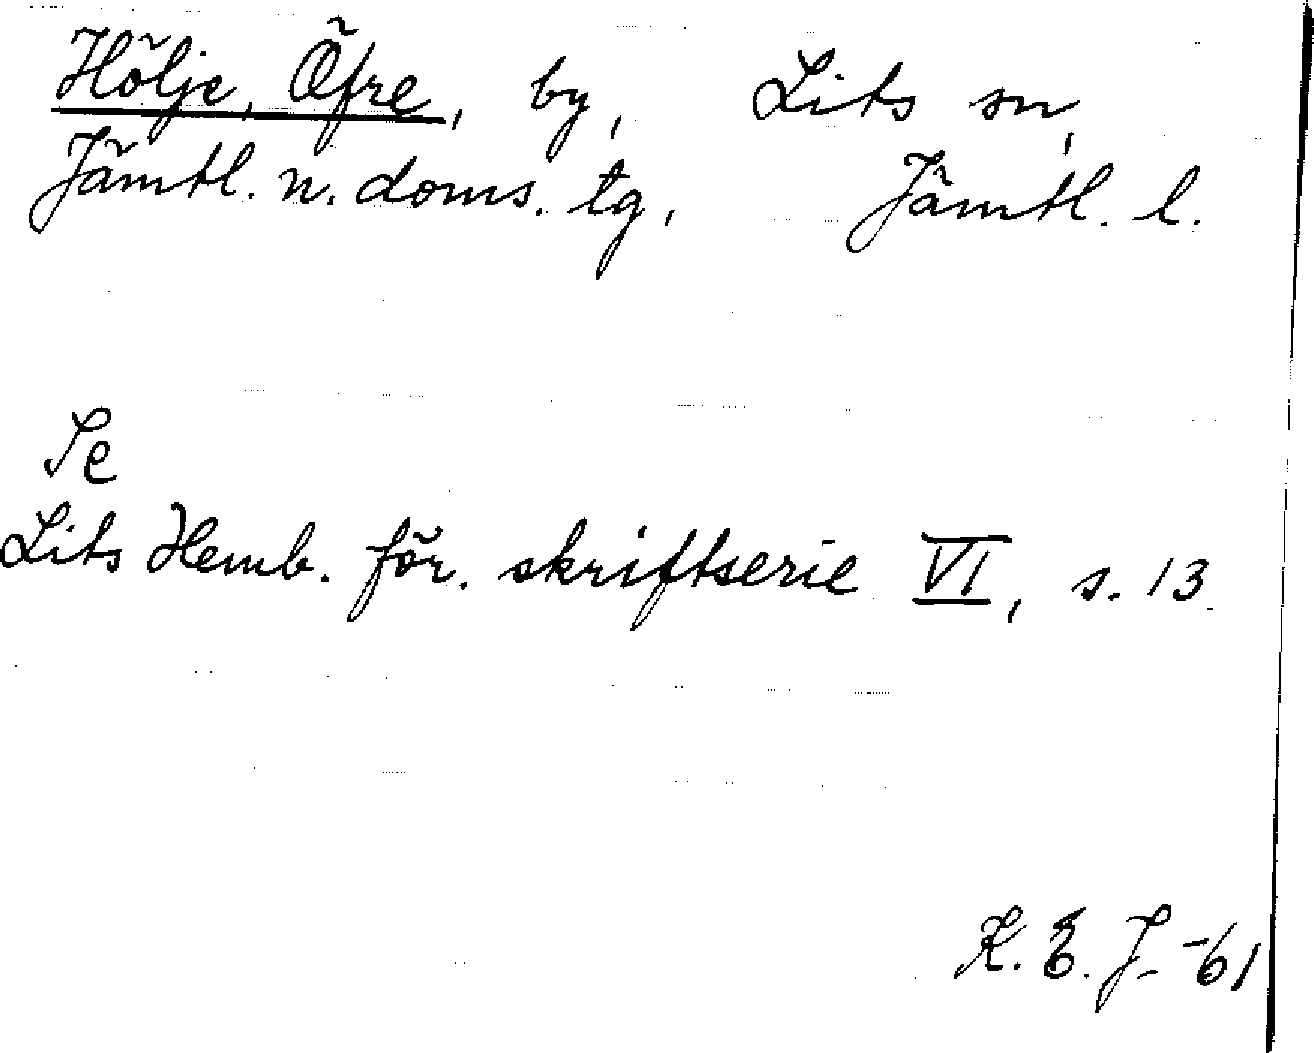 Hölje, Öfre, by, Lits sn,
Jämtl. n. doms. tg, Jämtl. l.
Se
Lits Hemb. för. skriftserie VI, s. 13
K. E. J. -61